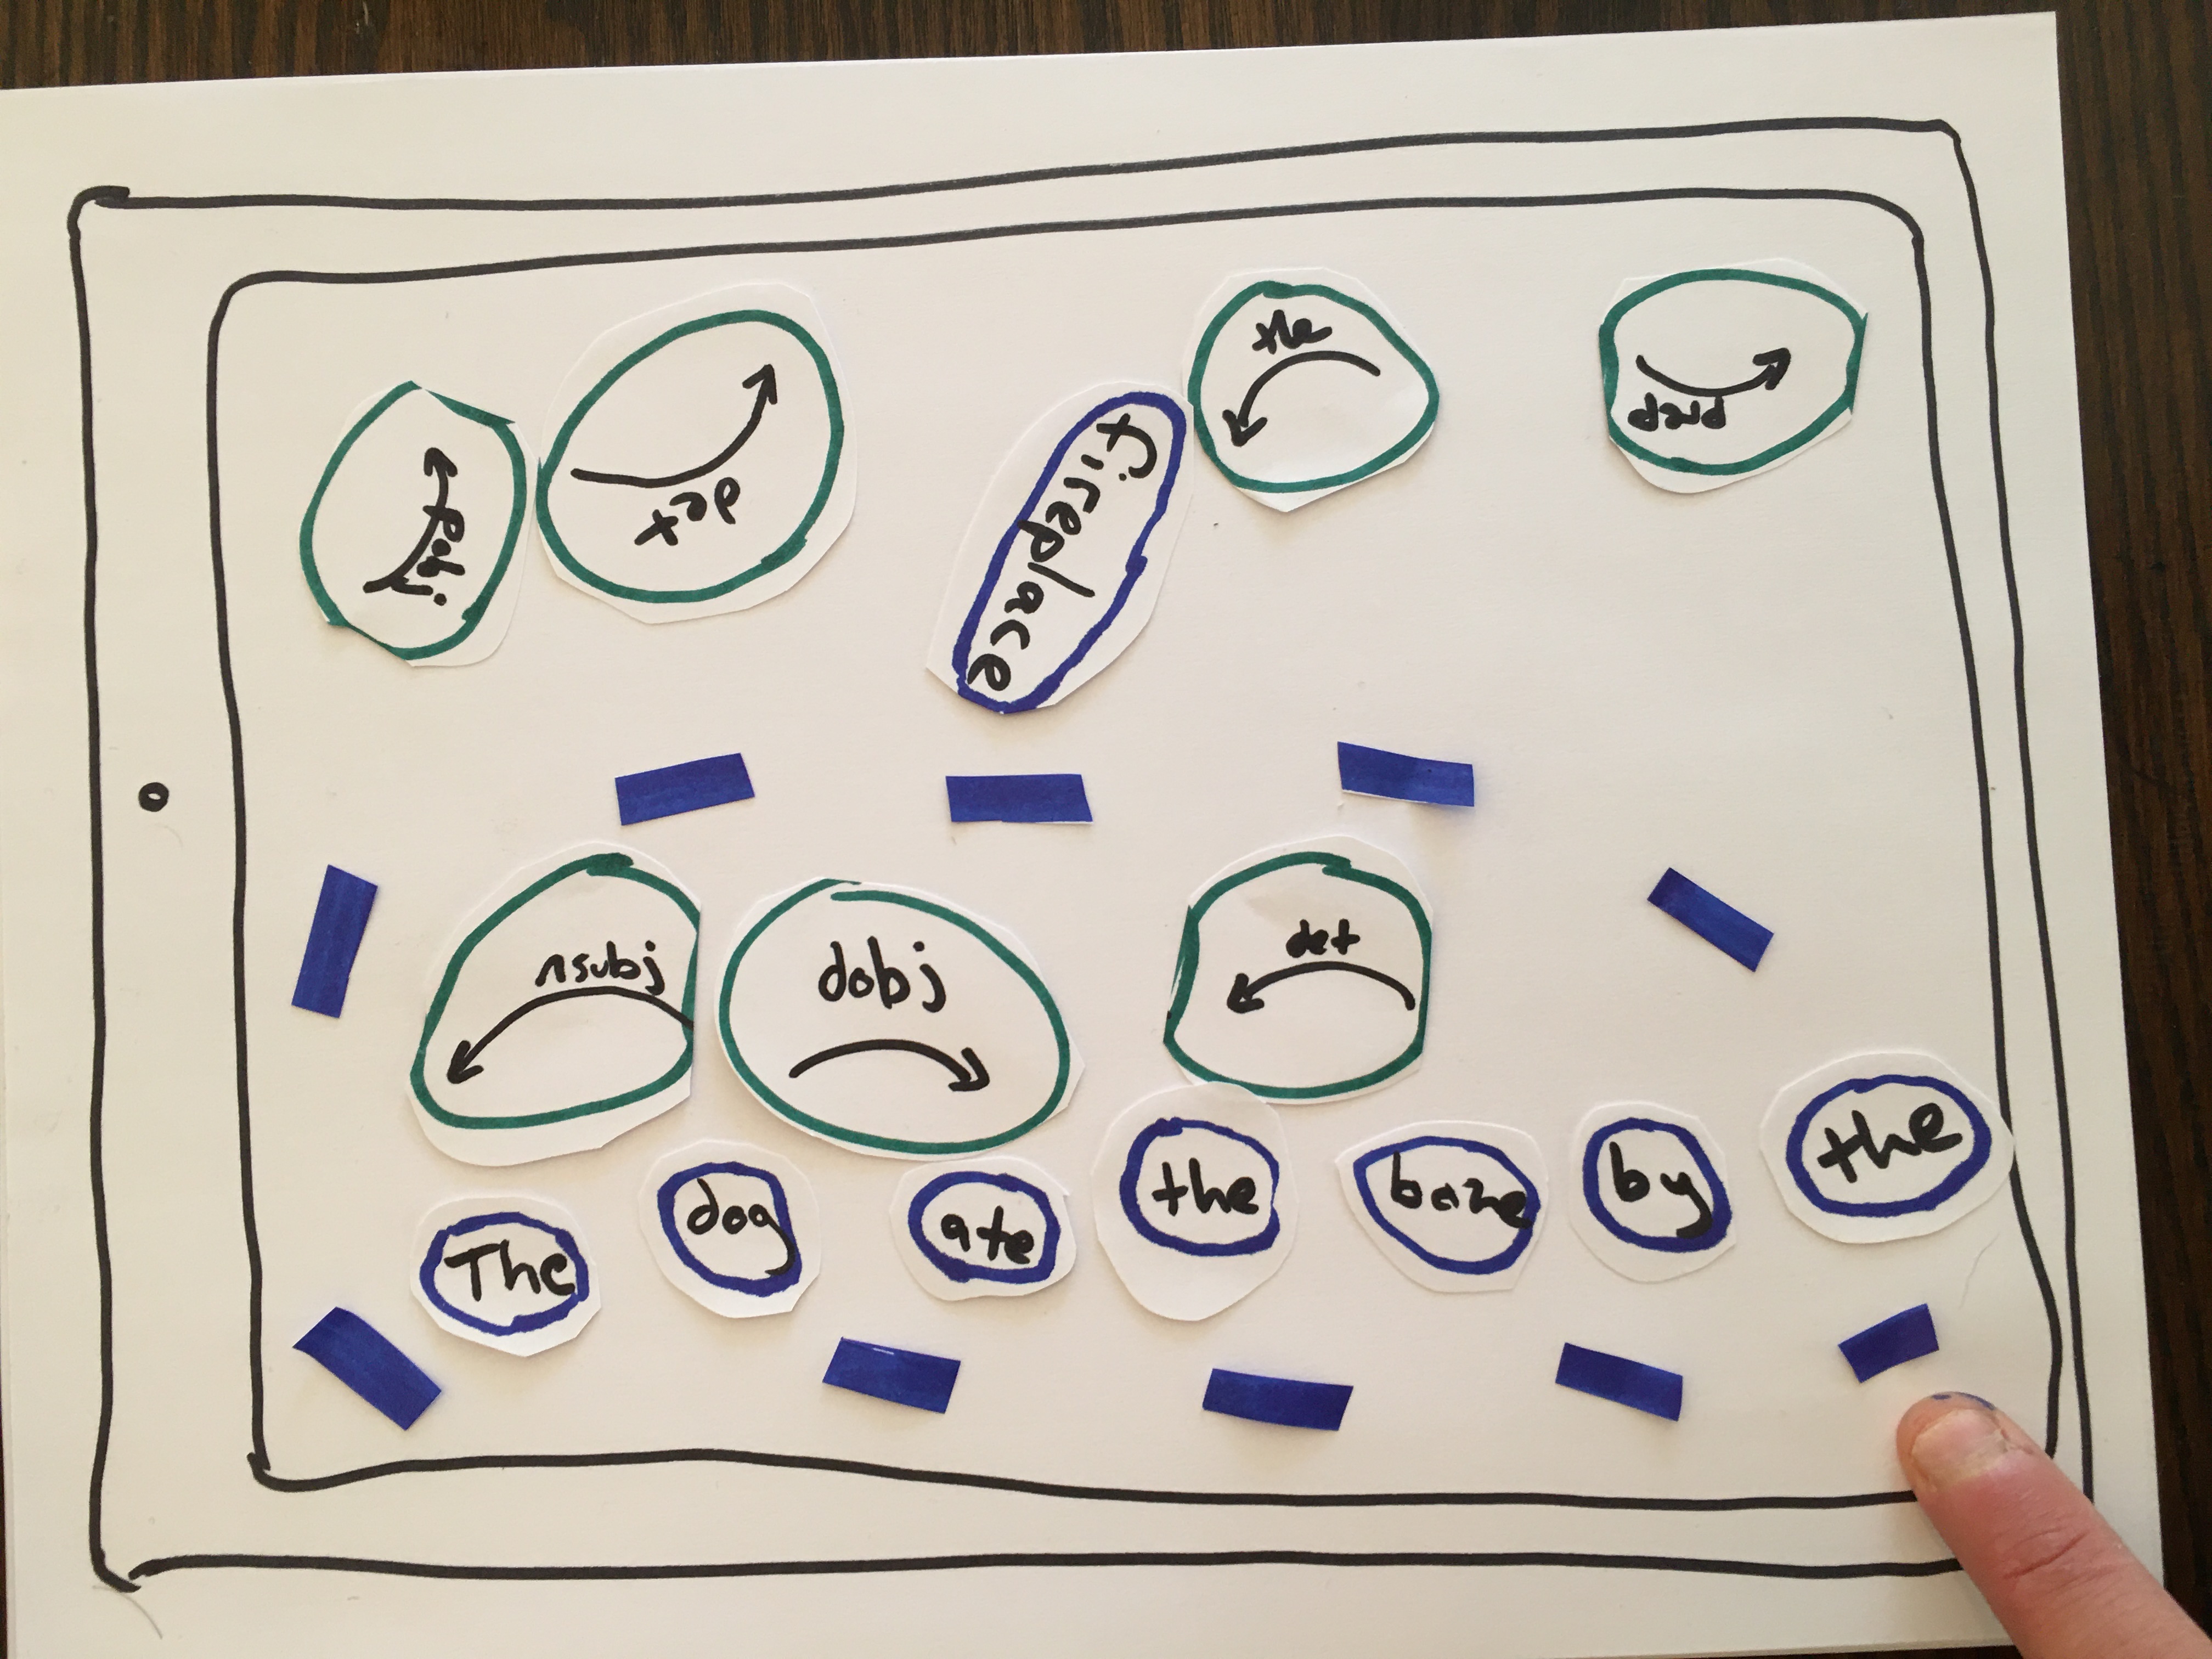 pobj
det
fireplace
the
prep
nsubj
dobj
det
The dog ate the bone by the